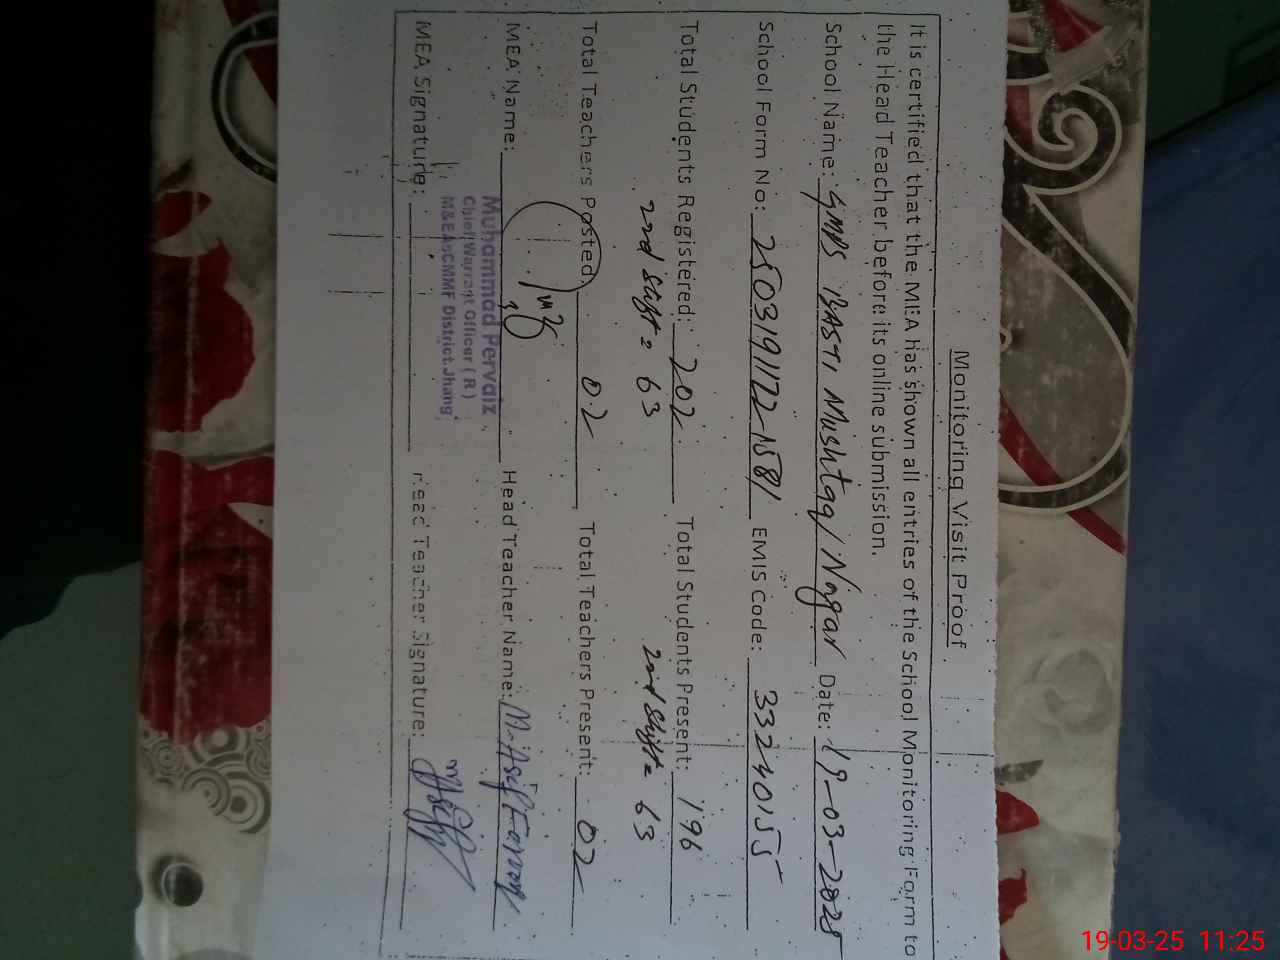 Monitoring Visit Proof
It is certified that the MEA has shown all entries of the School Monitoring Form to
the Head Teacher before its online submission.
School Name: GMPS BASTI Mushtaq Nagar Date: 19-03-2025
School Form No: 25031911221581 EMIS Code: 33240155
Total Students Registered: 202 Total Students Present: 196
2nd Shift = 63 2nd Shift = 63
Total Teachers Posted: 02 Total Teachers Present: 02
MEA Name: Head Teacher Name: M. Asif Farooq
Muhammad Pervaiz
Chief Warrant Officer ( R )
M&EA CMMF District Jhang
MEA Signature: Head Teacher Signature: M Asif
19-03-25 11:25